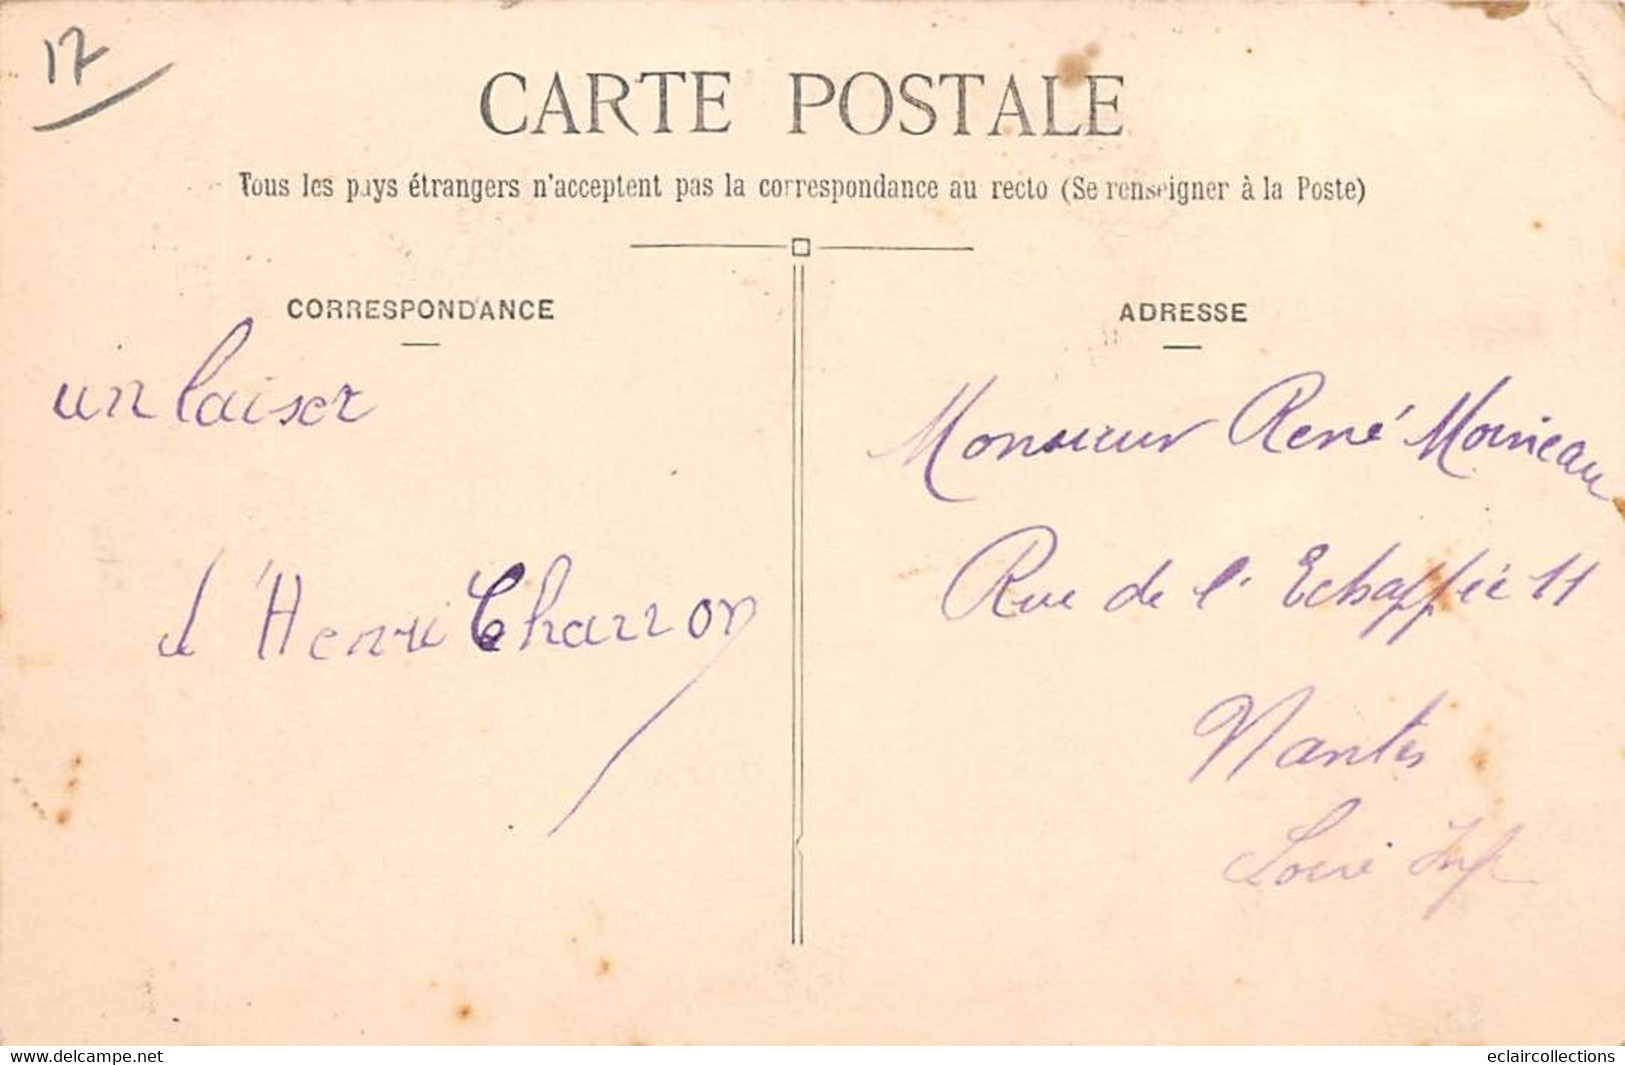 17
CARTE POSTALE
Tous les pays étrangers n'acceptent pas la correspondance au recto (Se renseigner à la Poste)
CORRESPONDANCE
un baiser
d'Henri Charron
ADRESSE
Monsieur René Moineau
Rue de l'Echappée 11
Nantes
Loire Inf
www.delcampe.net
eclaircollections